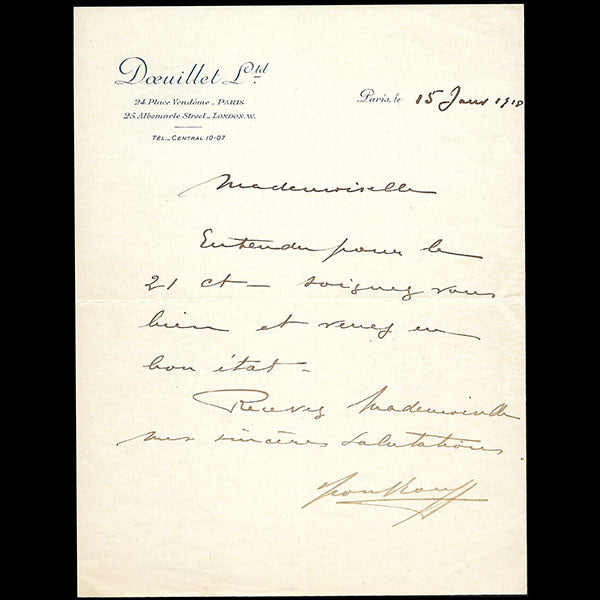 Dœuillet Ltd
24 Place Vendôme _ PARIS
25. Albemarle Street _ LONDON. W.
TÉL._ CENTRAL 10-07
Paris, le 15 Janv 1910
Mademoiselle
Entendu pour le
21 ct – soignez vous
bien et venez en
bon état –
Recevez Mademoiselle
mes sincères salutations